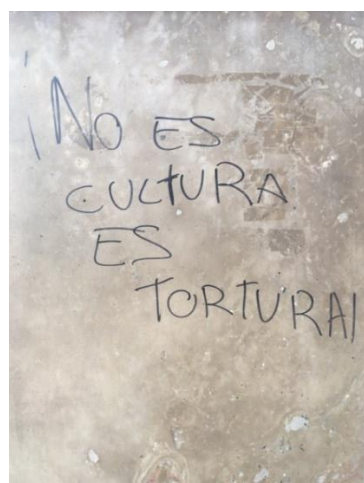 ¡No ES
CULTURA
ES
TORTURA!